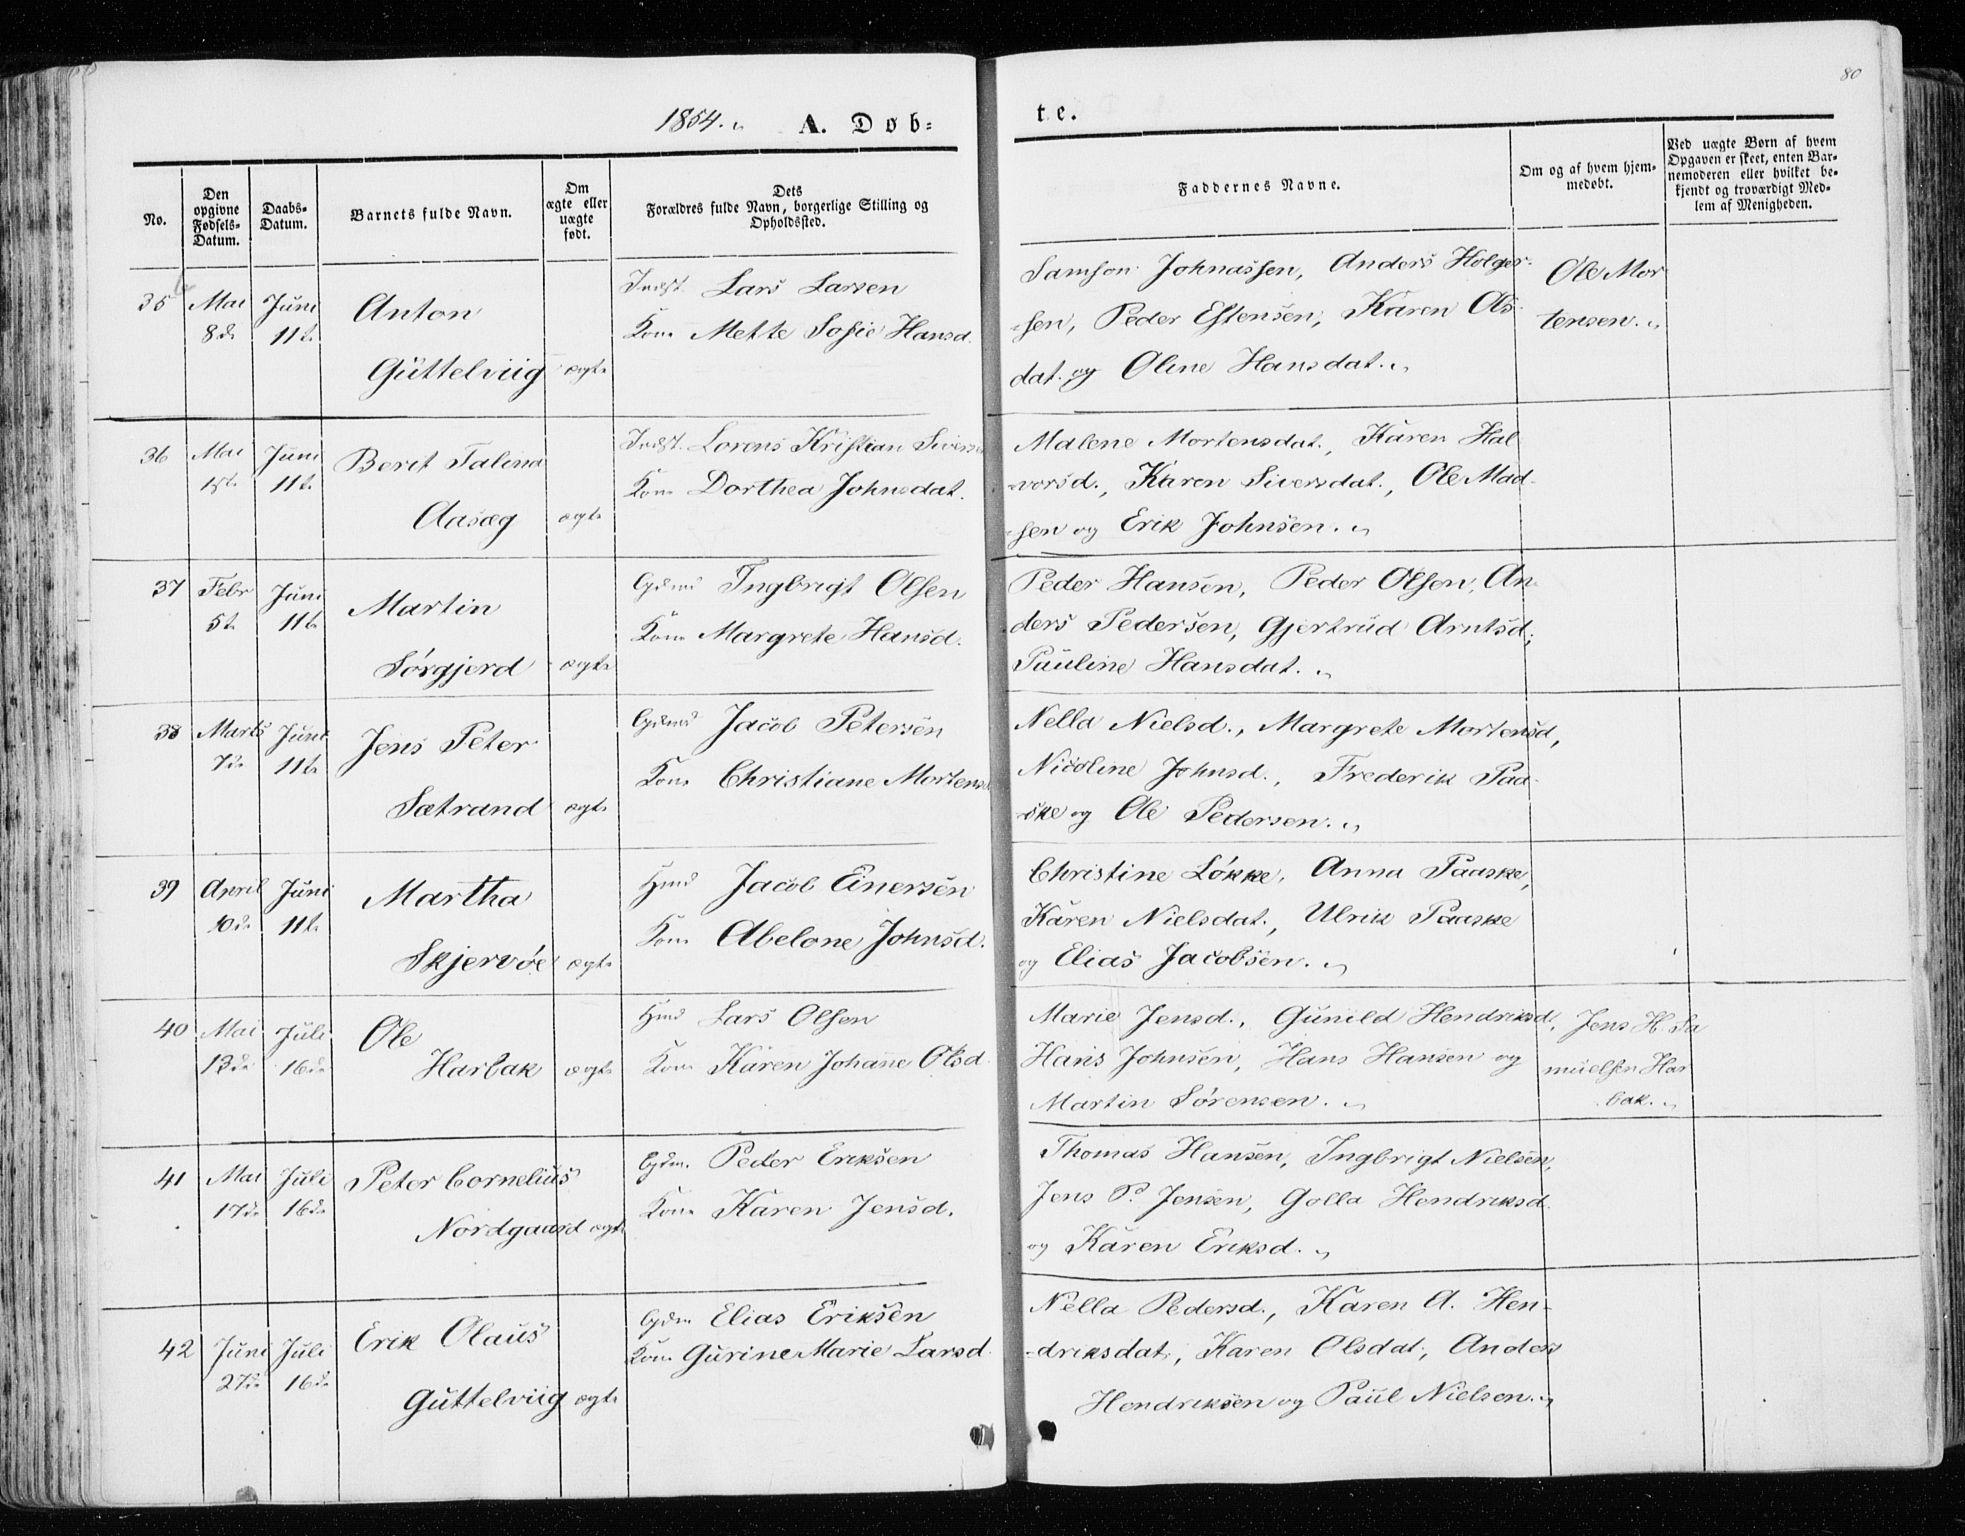 80
1854. A. Døb-
te.
No.
Den opgivne Fødsels-Datum.
Daabs-Datum.
Barnets fulde Navn.
Om ægte eller uægte født.
Dets Forældres fulde Navn, borgerlige Stilling og Opholdssted.
Faddernes Navne.
Om og af hvem hjem-medøbt.
Ved uægte Børn af hvem Opgaven er skeet, enten Bar-nemoderen eller hvilket be-kjendt og troværdigt Med-lem af Menigheden.
35 Mai 8de Juni 11te Anton
Güttelviig ægte
Indst. Lars Larsen
Kone Mette Sofie Hansd.
Samson Johnassen, Anders Holger-
-sen, Peder Estensen, Karen Ols-
dat. og Oline Hansdat.
Ole Mor
tensen.
36 Mai 15te Juni 11te Berit Talina
Aasæg ægte
Indst. Lorens Kristian Sivers
Kone Dorthea Johnsdat.
Malene Mortensdat., Karen Hal
-vorsd., Karen Siversdat., Ole Mad-
-sen og Erik Johnsen.
37 Febr 5te Juni 11te Martin
Sørgjerd ægte
Gydmd Ingbrigt Olsen
Kone Margrete Hansd.
Peder Hansen, Peder Olsen, An-
ders Pedersen, Gjertrud Arntsd.,
Pauline Hansdat.
38 Marts 7de Juni 11te Jens Peter
Sætrand ægte
Gydmd Jacob Petersen
Kone Christiane Mortensd
Nella Nielsd., Margrete Mortensd,
Nicoline Johnsd., Frederik Paa-
-ske og Ole Pedersen.
39 April 10de Juni 11te Martha
Skjervøe ægte
Hmd Jacob Einersen
Kone Abelone Johnsd.
Christine Løkke, Anna Paaske,
Karen Nielsdat., Ulrik Paaske
og Elias Jacobsen.
40 Mai 13de Juli 16de Ole
Harbak ægte
Hmd Lars Olsen
Kone Karen Johane Olsd.
Marie Jensd., Gunild Hendriksd,
Hans Johnsen, Hans Hansen og
Martin Sørensen.
Jens H. Sa
muelsen Har
bak.
41 Mai 17de Juli 16de Peter Cornelius
Nordgaard ægte
Gydm. Peder Eriksen
Kone Karen Jensd.
Thomas Hansen, Ingbrigt Nielsen,
Jens P. Jensen, Golla Hendriksd.
og Karen Eriksd.
42 Juni 27de Juli 16de Erik Olaus
Guttelviig ægte
Gydm Elias Eriksen
Kone Gurine Marie Larsd
Nella Pedersd., Karen A. Hen-
-driksdat, Karen Olsdat, Anders
Hendriksen og Paul Nielsen.